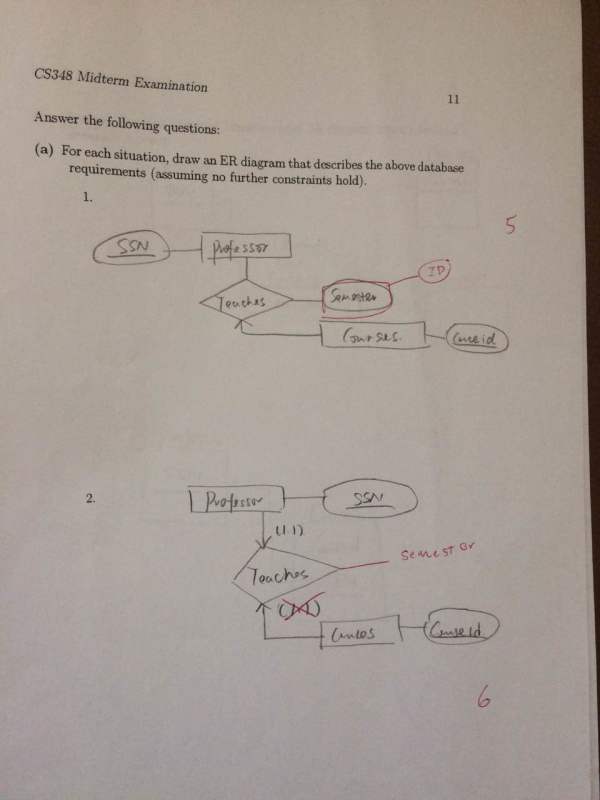 CS348 Midterm Examination
11
Answer the following questions:
(a) For each situation, draw an ER diagram that describes the above database
requirements (assuming no further constraints hold).
1.
5
SSN
Professor
ID
Teaches
Semester
Courses.
2.
Professor
SSN
(1.1)
Semester
Teaches
6